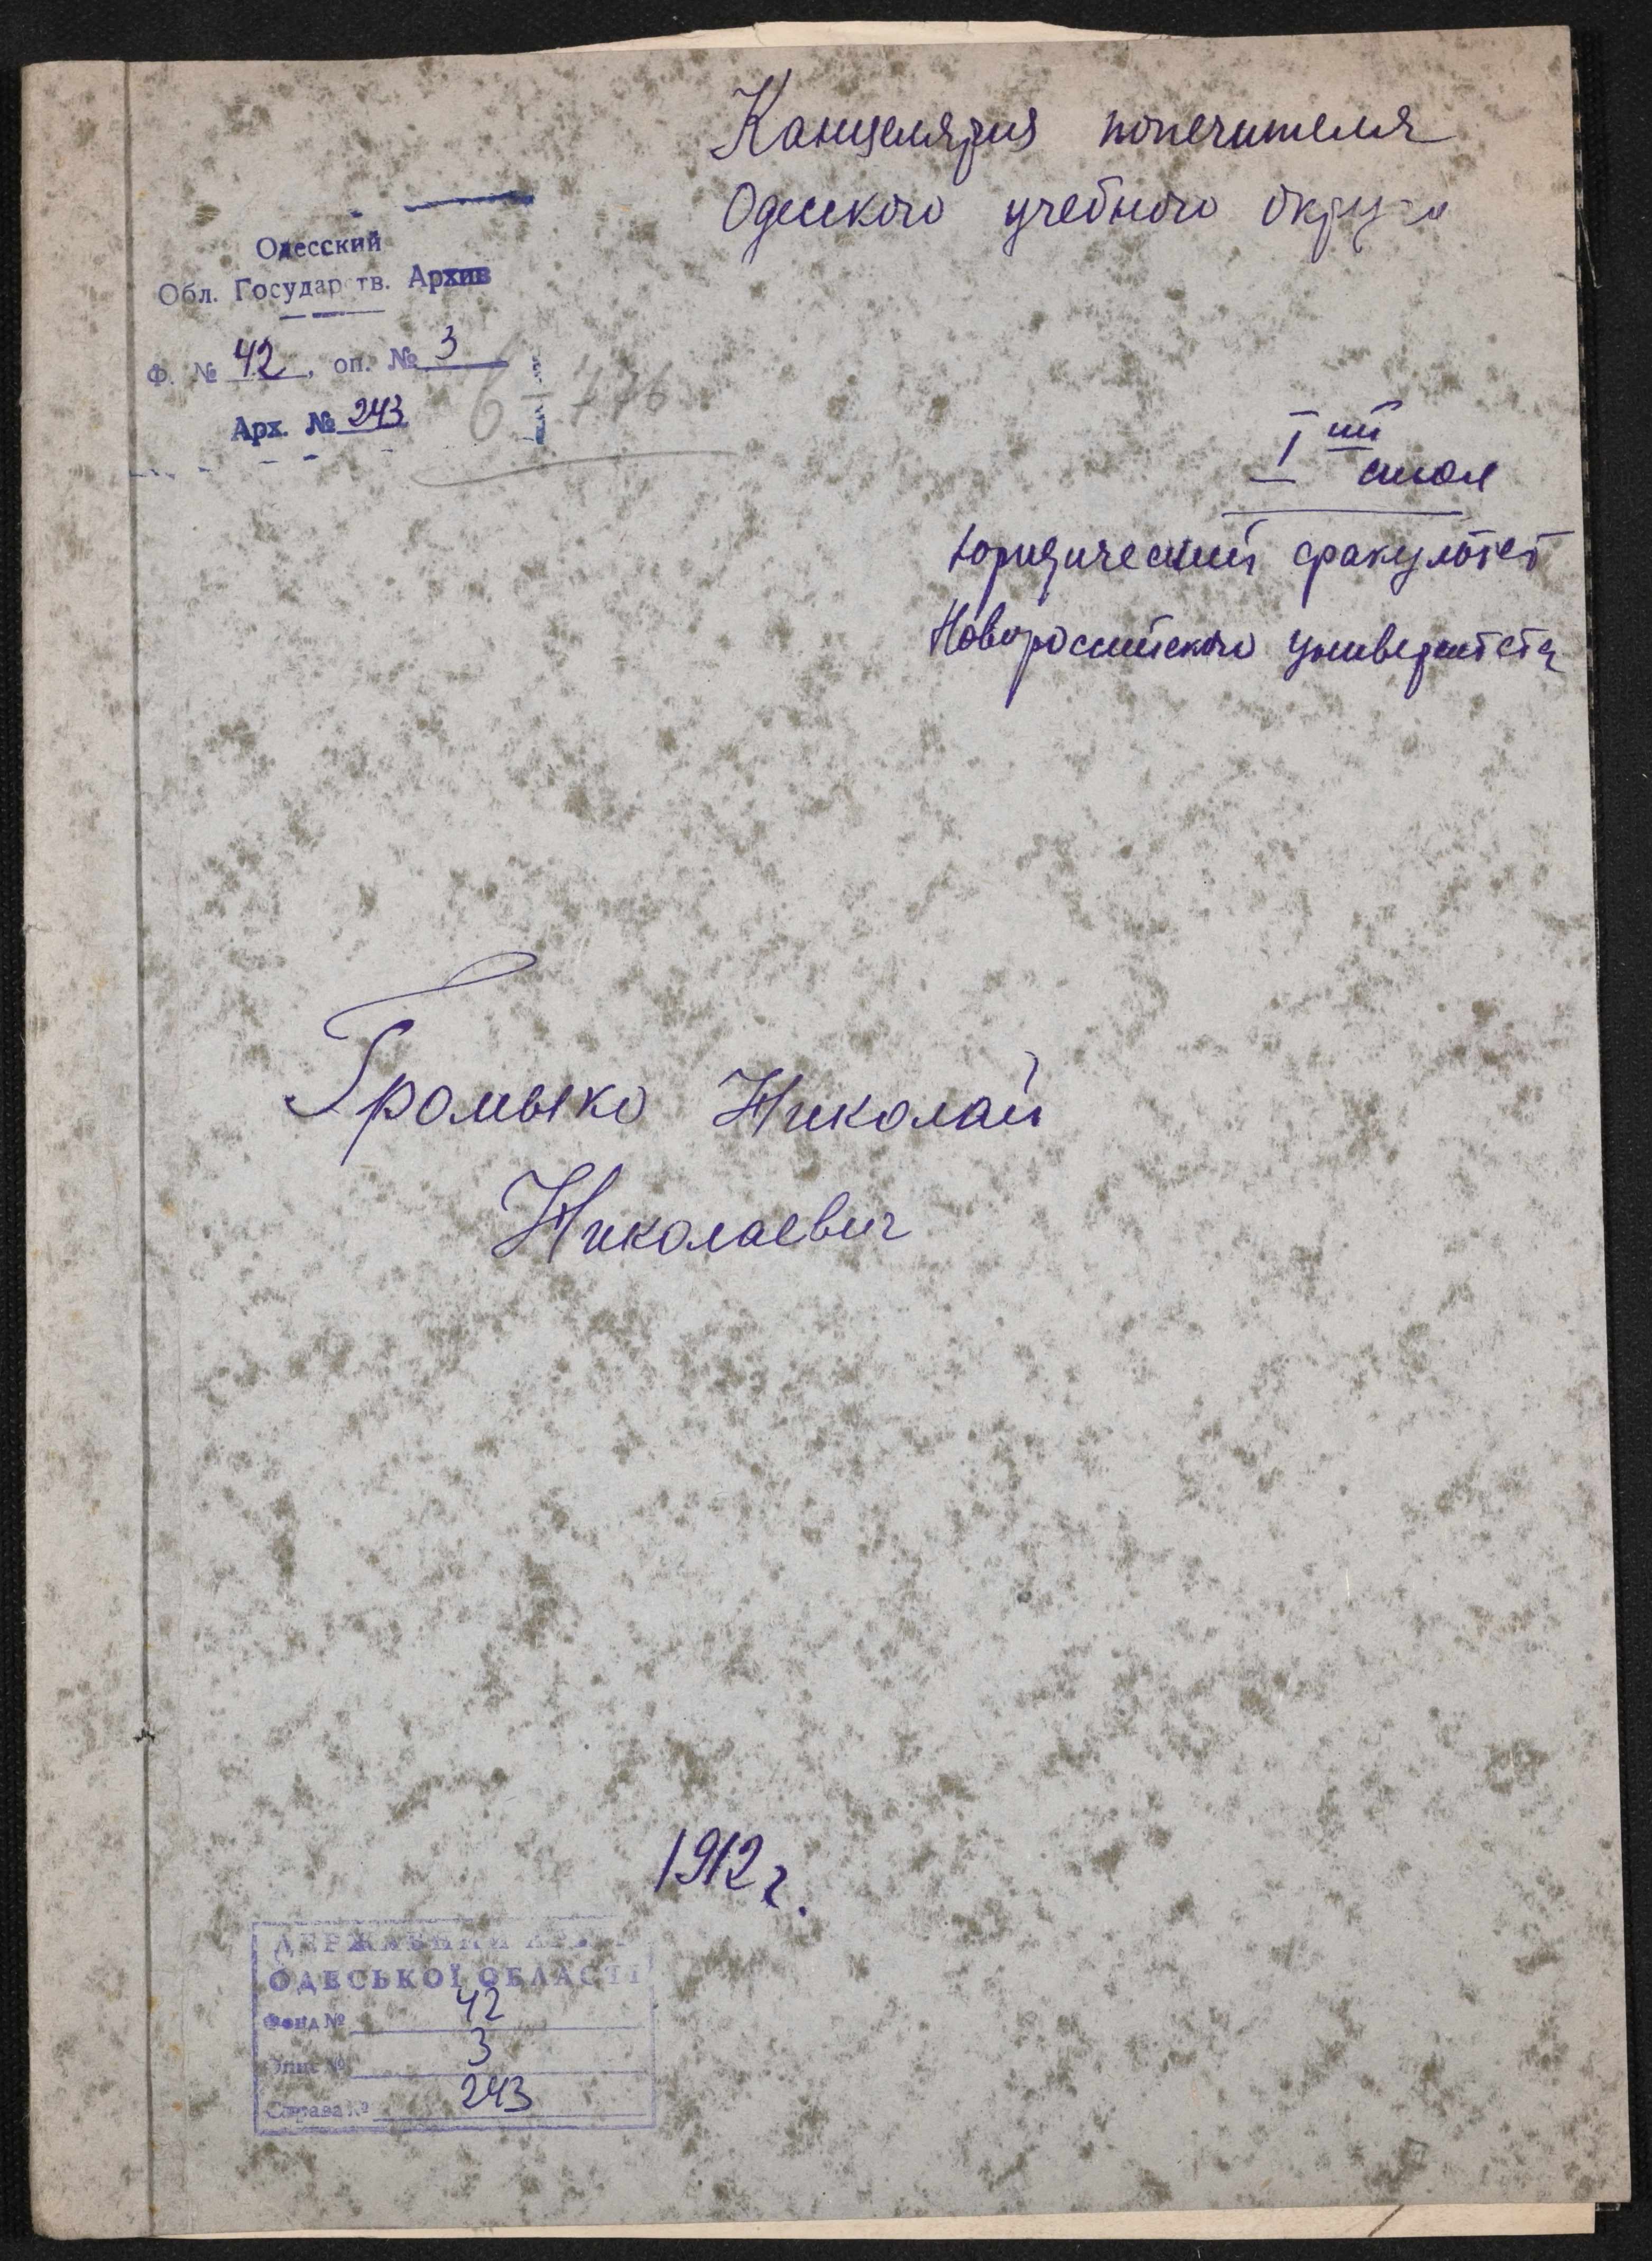 Канцелярия попечителя
Одесского учебного округа
Одесский
Обл. Государств. Архив
Ф. № 42, оп. № 3
Арх. № 243
776
I ый
стол
Юридический факультет
Новороссийского университета
Громыко Николай
Николаевич
1912 г.
ДЕРЖАВНИЙ АРХІВ
ОДЕСЬКОЇ ОБЛАСТІ
Фонд № 42
Опис № 3
Справа № 243